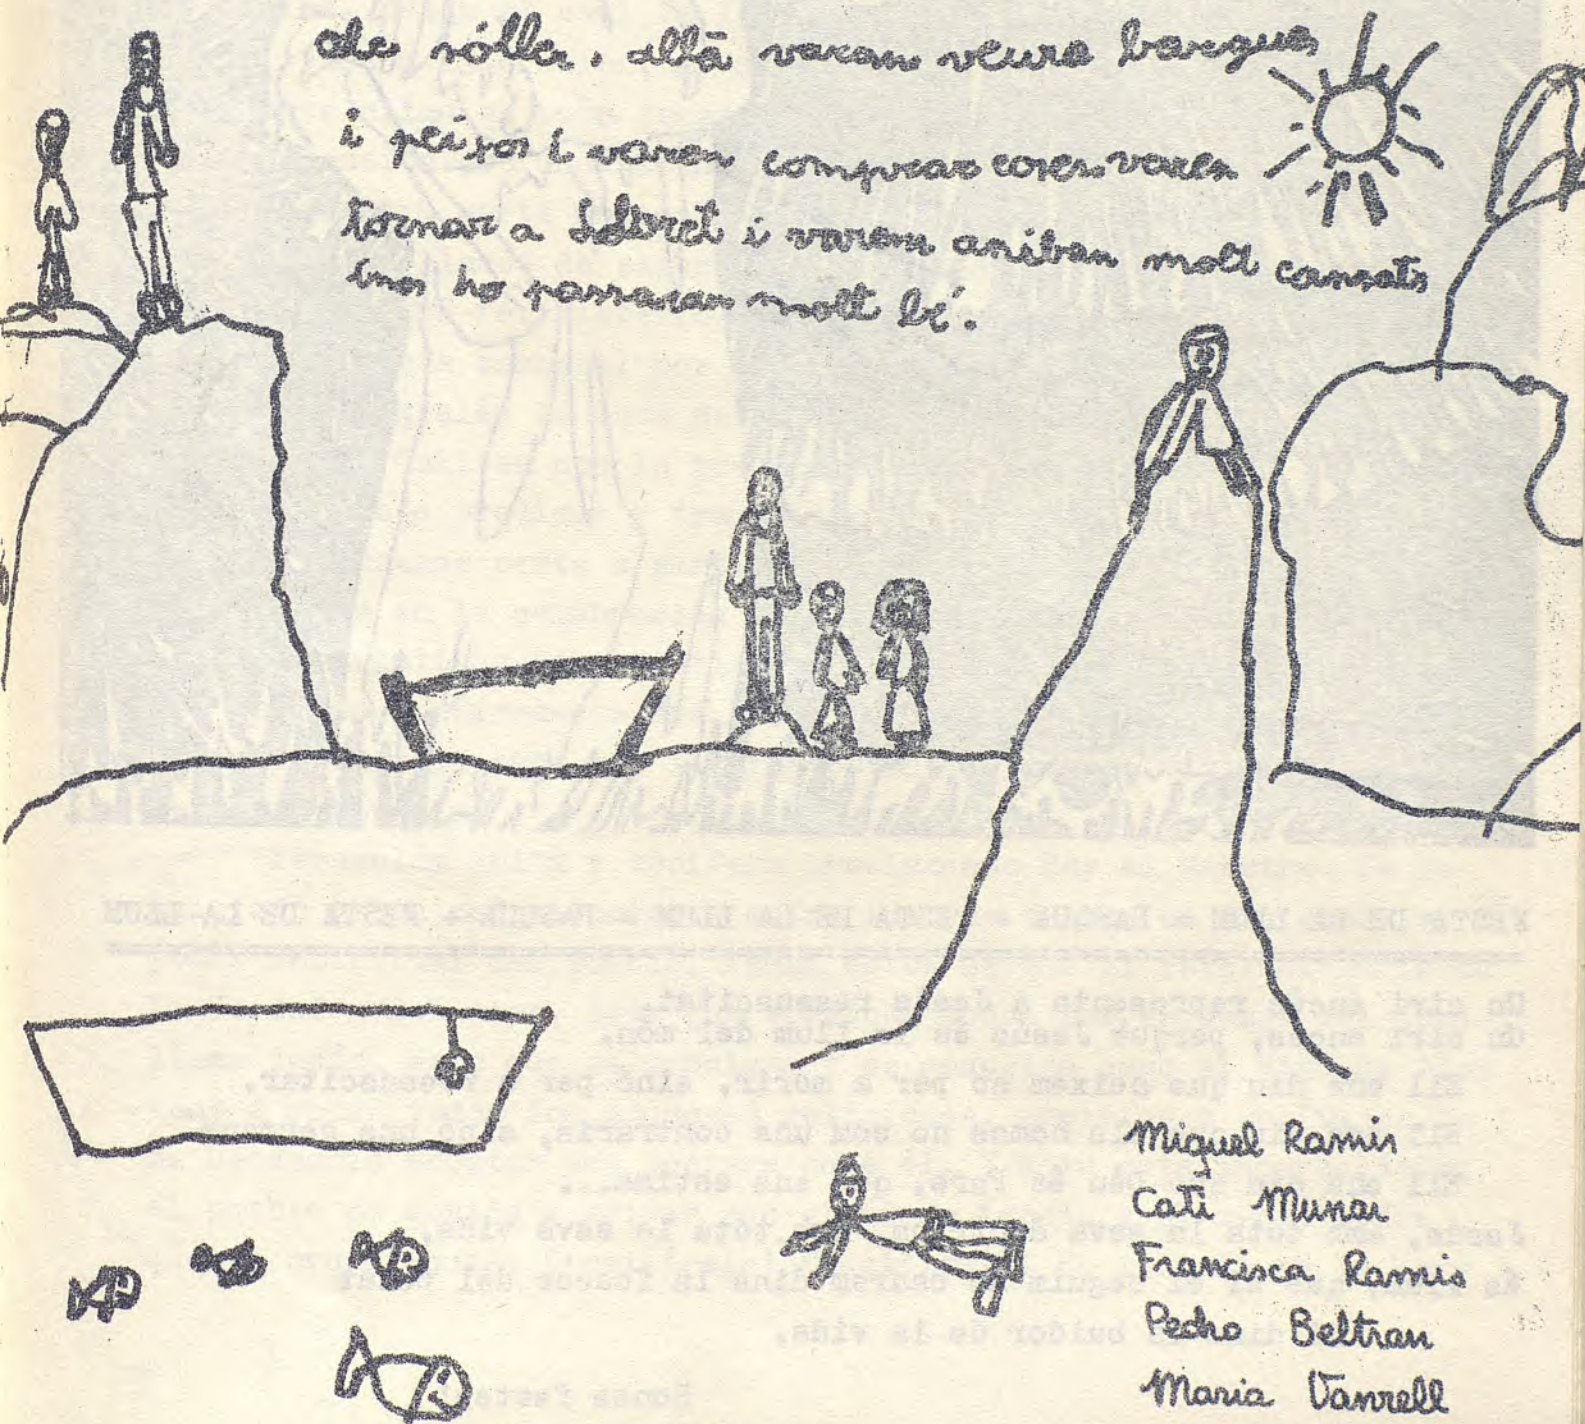 de sóller. allà varam veura barques
i peixos i varen comprar coses varen
tornar a Lloret i varem aniban molt cansats
inos ho passaran molt bé.
Miquel Ramis
Cati Munar
Francisca Ramis
Pedro Beltran
Maria Vanrell